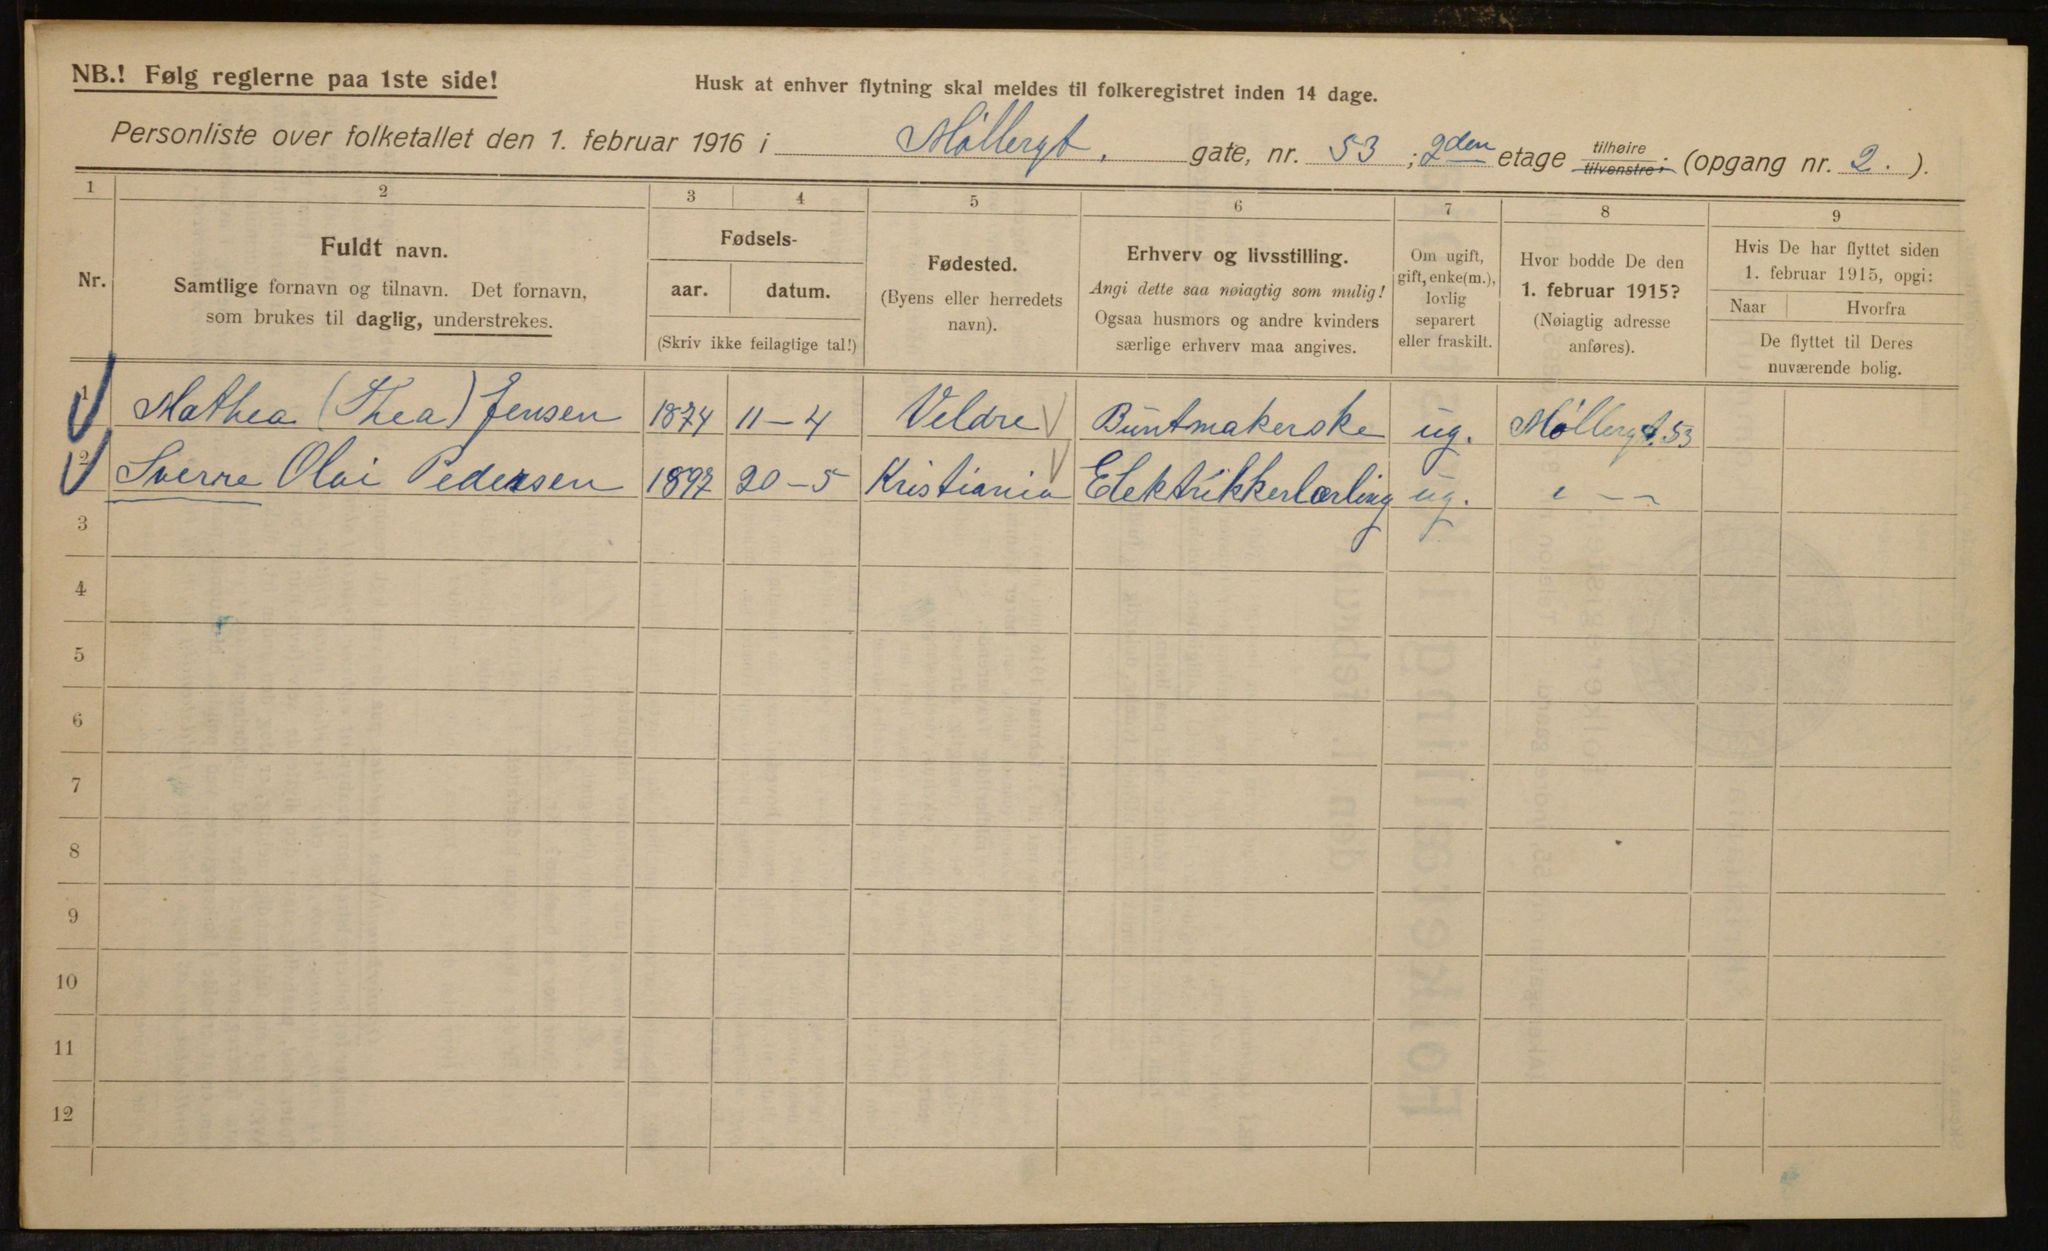 NB.! Følg reglerne paa 1ste side!
Husk at enhver flytning skal meldes til folkeregistret inden 14 dage.
Personliste over folketallet den 1. februar 1916 i Møllergt. gate, nr. 53; 2den etage tilhøire tilvenstre; (opgang nr. 2.).
1 2 3 4 5 6 7 8 9
Nr.
Fuldt navn.
Samtlige fornavn og tilnavn. Det fornavn,
som brukes til daglig, understrekes.
Fødsels-
aar. datum.
(Skriv ikke feilagtige tal!)
Fødested.
(Byens eller herredets
navn).
Erhverv og livsstilling.
Angi dette saa nøiagtig som mulig!
Ogsaa husmors og andre kvinders
særlige erhverv maa angives.
Om ugift,
gift, enke(m.),
lovlig
separert
eller fraskilt.
Hvor bodde De den
1. februar 1915?
(Nøiagtig adresse
anføres).
Hvis De har flyttet siden
1. februar 1915, opgi:
Naar Hvorfra
De flyttet til Deres
nuværende bolig.
1 Mathea (Thea) Jensen 1874 11-4 Veldre Buntmakerske ug. Møllergt. 53
2 Sverre Olai Pedersen 1897 20-5 Kristiania Elektrikkerlærling ug. " — –
3
4
5
6
7
8
9
10
11
12